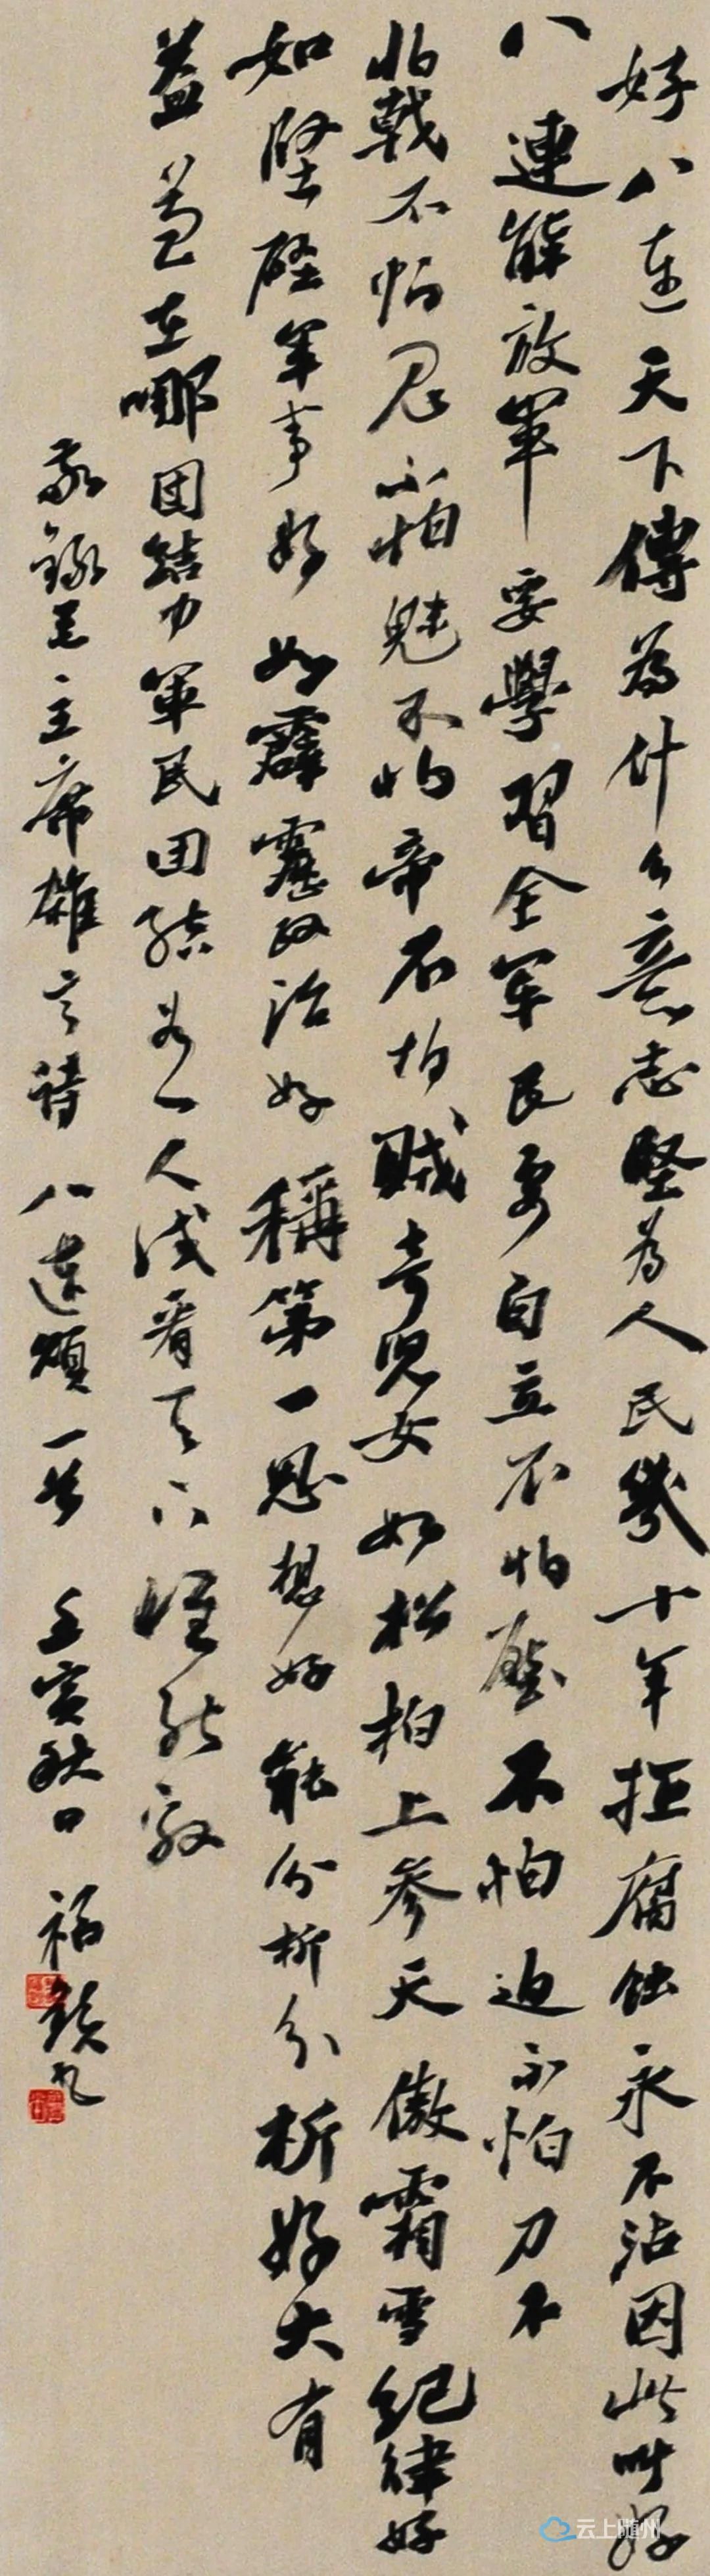 好八连天下傳為什么意志堅為人民幾十年拒腐蝕永不沾因此叫好
八連解放軍要學習全軍民要自立不怕壓不怕迫不怕刀不
怕戟不怕鬼不怕魅不怕帝不怕賊奇兒女如松柏上参天傲霜雪紀律好
如堅壁军事好如霹靂政治好稱第一思想好能分析分析好大有
益益在哪团結力軍民团结如一人试看天下谁能敵
敬錄毛主席雜言詩八连頌一首壬寅秋日
云上随州